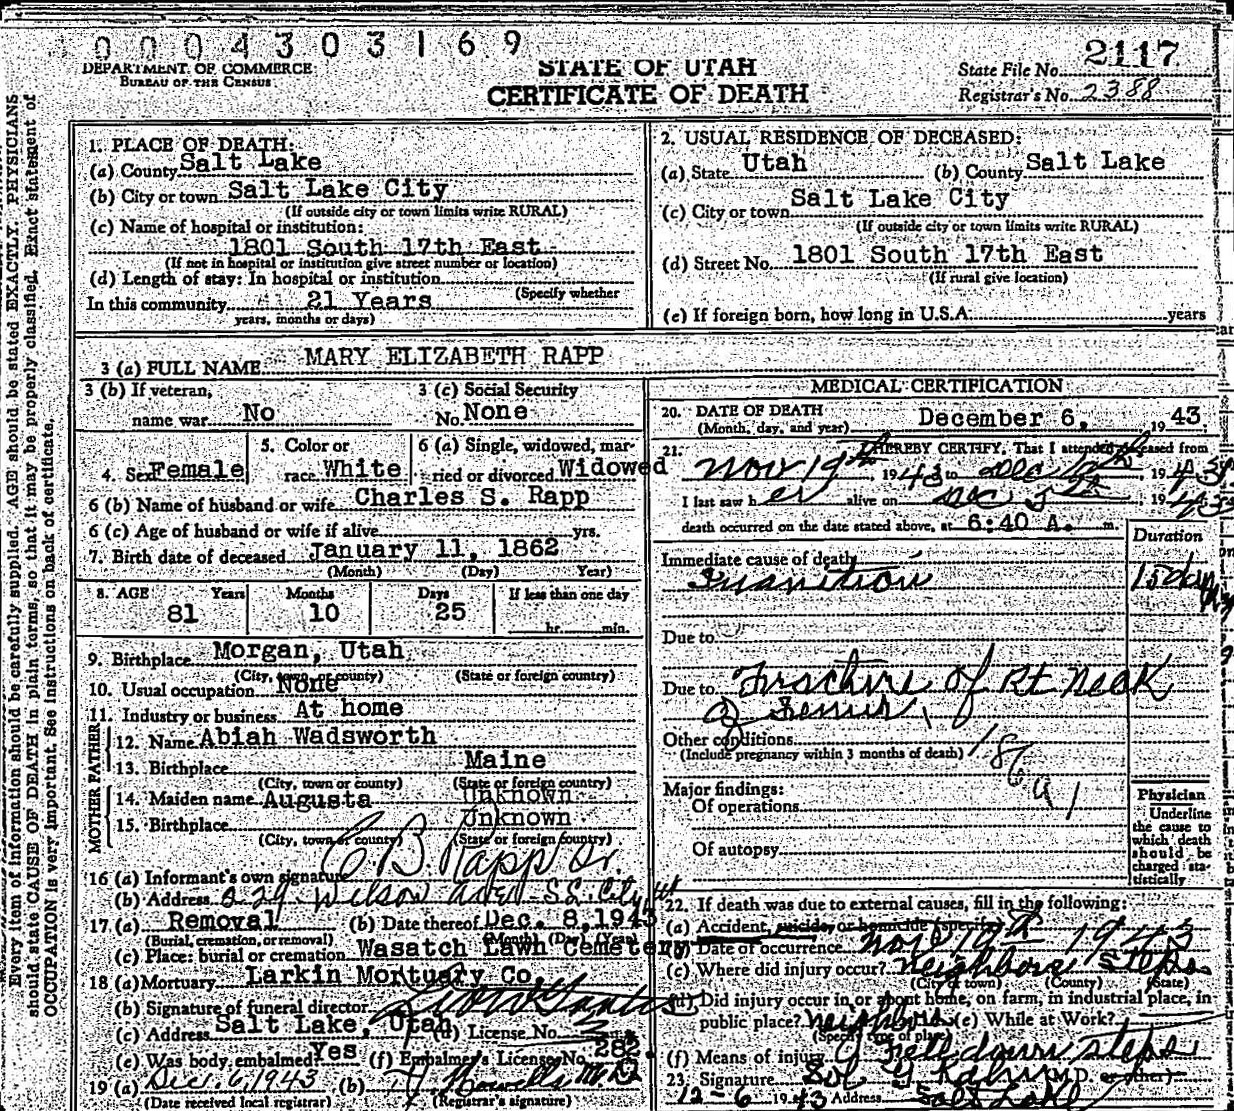 0004303169
DEPARTMENT OF COMMERCE
BUREAU OF THE CENSUS
STATE OF UTAH
CERTIFICATE OF DEATH
State File No. 2117
Registrar's No. 2388
Every item of information should be carefully supplied. AGE should be stated EXACTLY. PHYSICIANS
should state CAUSE OF DEATH in plain forms, so that it may be properly classified. Exact statement of
OCCUPATION is very important. See instructions on back of certificate.
1. PLACE OF DEATH:
(a) County Salt Lake
(b) City or town Salt Lake City
(If outside city or town limits write RURAL)
(c) Name of hospital or institution:
1801 South 17th East
(If not in hospital or institution give street number or location)
(d) Length of stay: In hospital or institution
(Specify whether
In this community 21 Years
years, months or days)
2. USUAL RESIDENCE OF DECEASED:
(a) State Utah (b) County Salt Lake
(c) City or town Salt Lake City
(If outside city or town limits write RURAL)
(d) Street No. 1801 South 17th East
(If rural give location)
(e) If foreign born, how long in U.S.A. years
3 (a) FULL NAME MARY ELIZABETH RAPP
3 (b) If veteran,
name war No
3 (c) Social Security
No. None
4. Sex Female
5. Color or
race White
6 (a) Single, widowed, mar-
ried or divorced Widowed
6 (b) Name of husband or wife Charles S. Rapp
6 (c) Age of husband or wife if alive yrs.
7. Birth date of deceased January 11, 1862
(Month) (Day) Year)
8. AGE Years Months Days If less than one day
81 10 25 hr. min.
9. Birthplace Morgan, Utah
(City, town, or county) (State or foreign country)
10. Usual occupation None
11. Industry or business At home
FATHER
12. Name Abiah Wadsworth
13. Birthplace Maine
(City, town or county) (State or foreign country)
MOTHER
14. Maiden name Augusta Unknown
15. Birthplace Unknown
(City, town or county) (State or foreign country)
16 (a) Informant's own signature C B Rapp Sr.
(b) Address Wilson Ave S.L. City
17 (a) Removal (b) Date thereof Dec. 8, 1943
(Burial, cremation, or removal) (Month) (Day) (Year)
(c) Place: burial or cremation Wasatch Lawn Cemetery
18 (a) Mortuary Larkin Mortuary Co.
(b) Signature of funeral director
(c) Address Salt Lake, Utah (d) License No.
(e) Was body embalmed? Yes (f) Embalmer's License No. 283.
19 (a) Dec. 6, 1943 (b) Howells M.D.
(Date received local registrar) (Registrar's signature)
MEDICAL CERTIFICATION
20. DATE OF DEATH
(Month, day, and year) December 6, 1943.
21. I HEREBY CERTIFY, That I attended deceased from
Nov 19th, 1943 to Dec, 1943
I last saw her alive on Dec 5th, 1943
death occurred on the date stated above, at 6:40 A. m.
Duration
Immediate cause of death
Inanition 15 days
Due to
Due to Fracture of Rt Neck
of Femur
Other conditions
(Include pregnancy within 3 months of death)
186a1
Major findings:
Of operations
Of autopsy
Physician
Underline
the cause to
which death
should be
charged sta-
tistically
22. If death was due to external causes, fill in the following:
(a) Accident, suicide, or homicide (specify)
(b) Date of occurrence Nov 19th 1943
(c) Where did injury occur? Neighbors steps
(City or town) (County) (State)
(d) Did injury occur in or about home, on farm, in industrial place, in
public place? Neighbors (e) While at Work?
(Specify type of place)
(f) Means of injury Fell down steps
23. Signature Sol G Kahn M.D. or other)
12-6 1943 Address Salt Lake